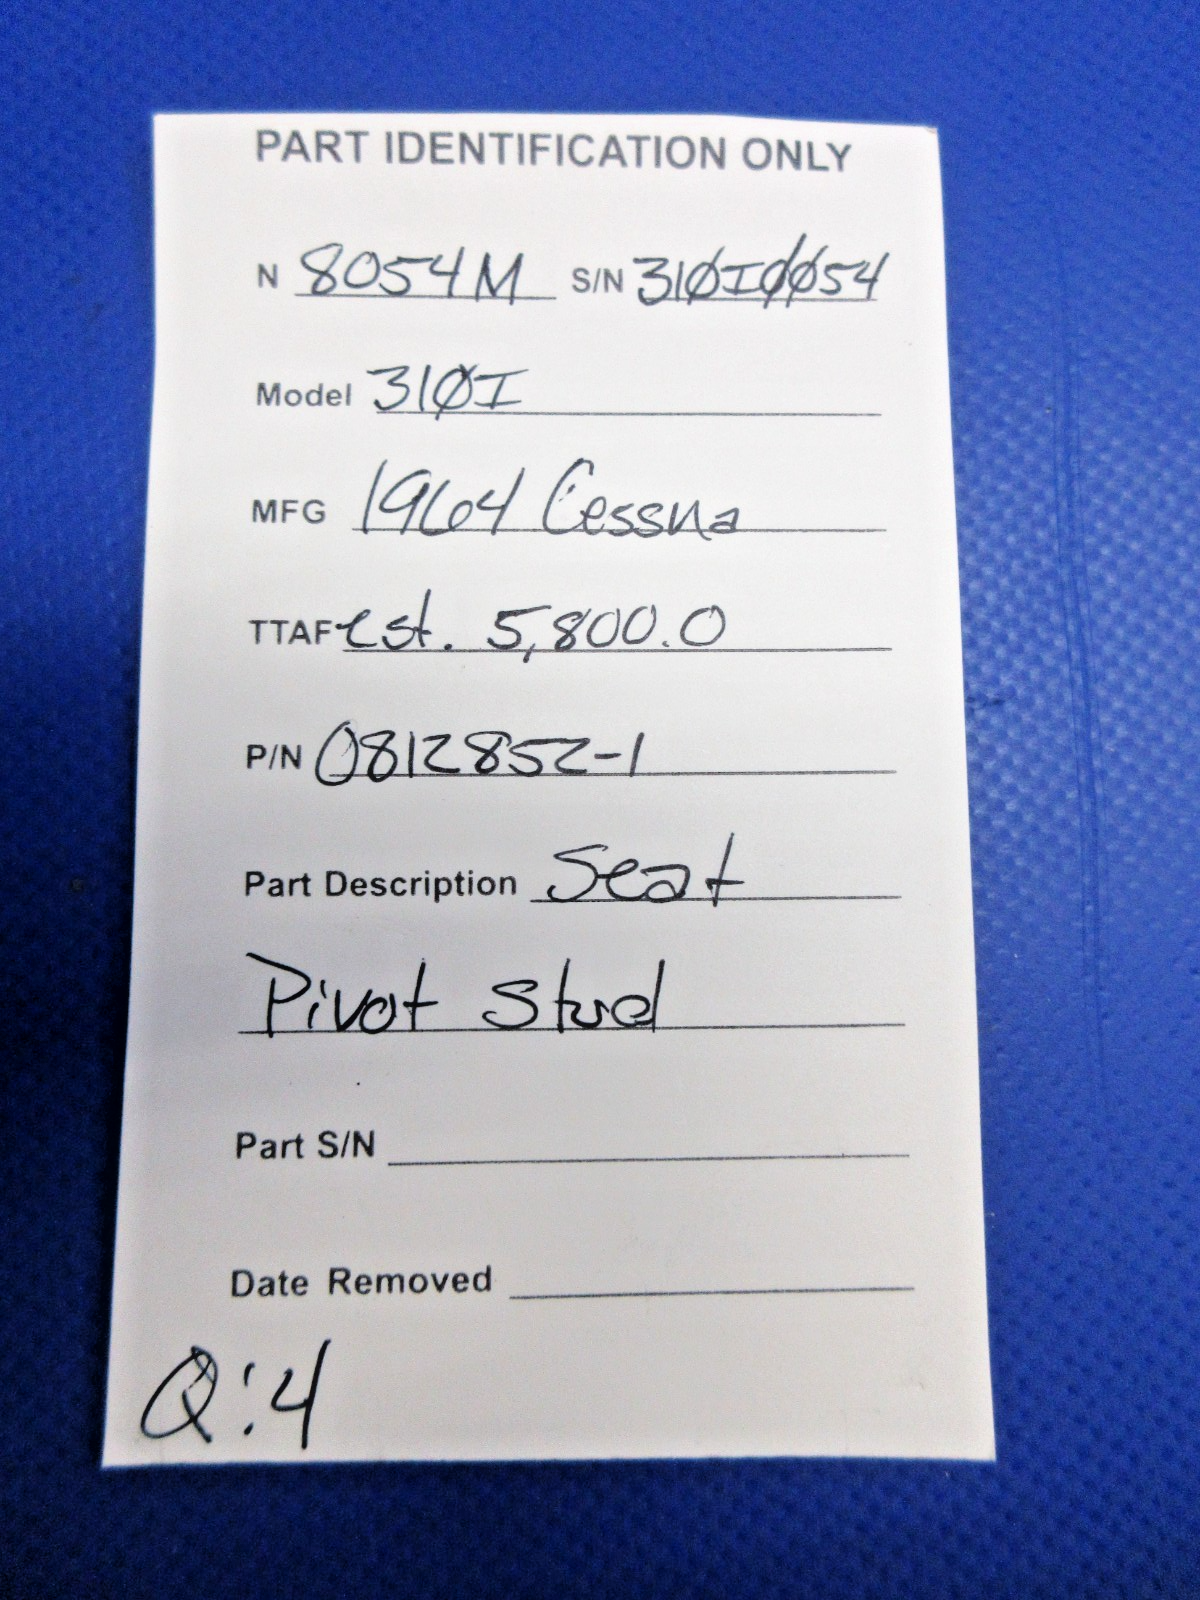 PART IDENTIFICATION ONLY
N 8054M S/N 310I0054
Model 310I
MFG 1964 Cessna
TTAF est. 5,800.0
P/N 0812852-1
Part Description Seat
Pivot Stud
Part S/N
Date Removed
Q:4